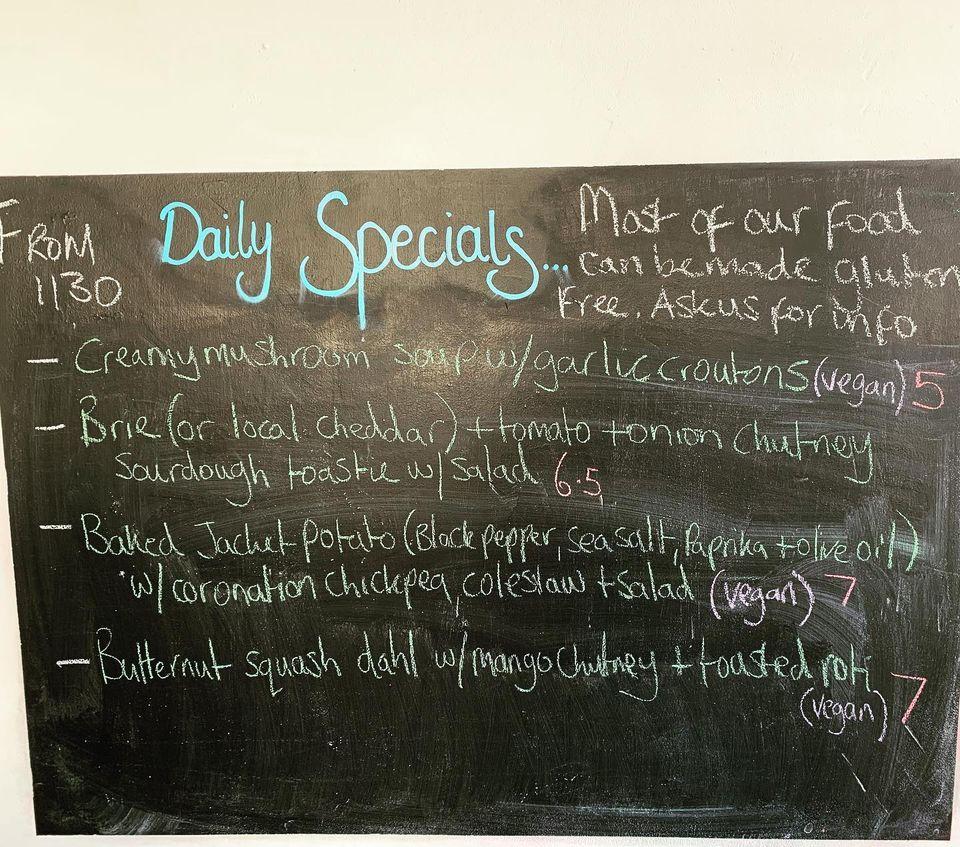 FROM
1130
Daily Specials...
Most of our food
can be made gluten
Free. Ask us for info
- Creamy mushroom soup w/ garlic croutons (vegan) 5
- Brie (or local cheddar) + tomato + onion chutney
sourdough toastie w/ salad 6.5
- Baked Jacket potato (Black pepper, sea salt, Paprika + olive oil)
w/ coronation chickpea, coleslaw + salad (vegan) 7
- Butternut squash dahl w/ mango chutney + toasted roti
(vegan) 7